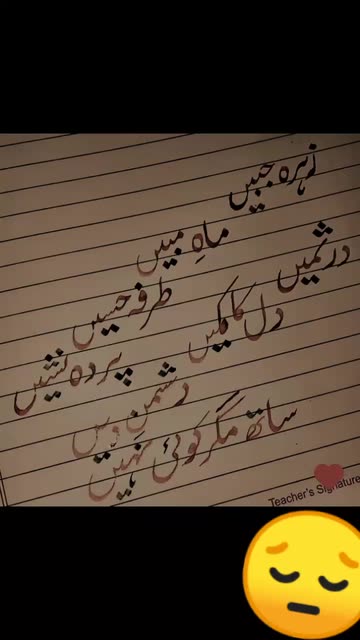 زہرہ جبیں
ماہِ مبیں
درثمیں
طرفہ حسیں
دل کا مکیں
پردہ نشیں
دشمنِ دیں
ساتھ مگر کوئی نہیں
Teacher's Signature